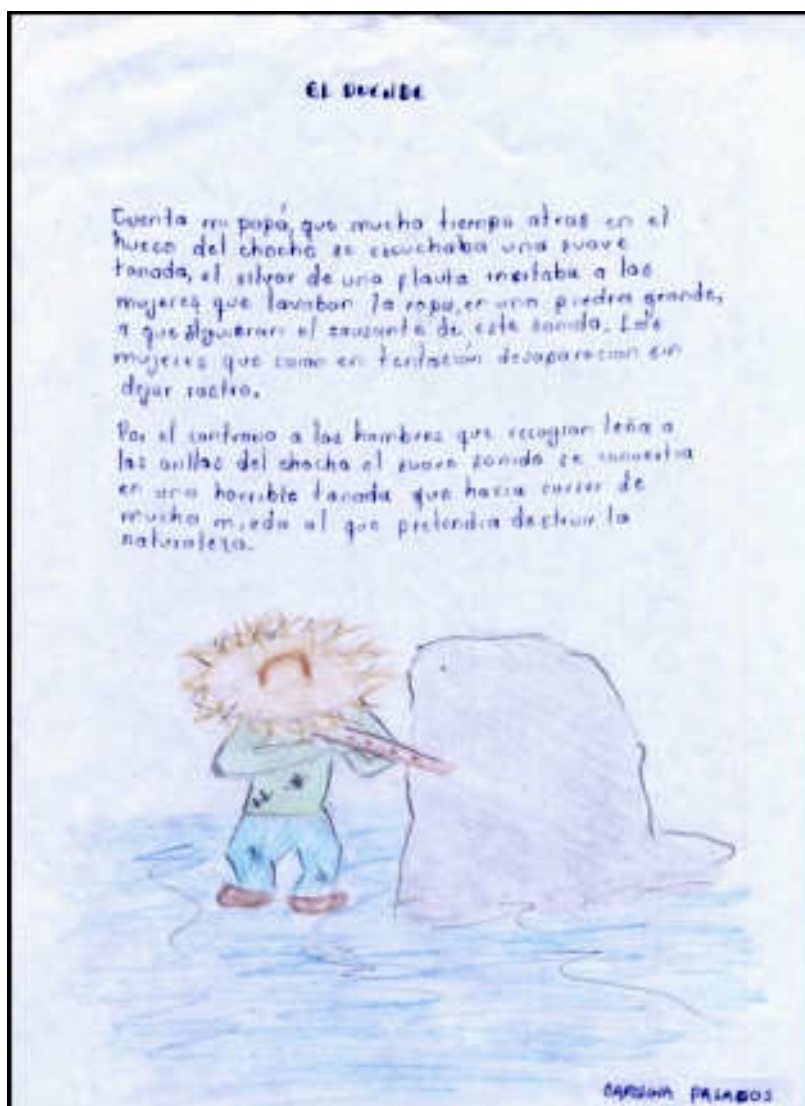 EL DUENDE
Cuenta mi papá, que mucho tiempo atras en el
hueco del chocho se escuchaba una suave
tonada, el silvar de una flauta incitaba a las
mujeres que lavaban la ropa, en una piedra grande,
a que siguieran el causante de este sonido. Las
mujeres que como en tentación desaparecian sin
dejar rastro.
Por el contrario a los hombres que recogian leña a
las orillas del chocho el suave sonido se convertia
en una horrible tonada que hacia correr de
mucho miedo al que pretendia destruir la
naturaleza.
CAROLINA PALACIOS